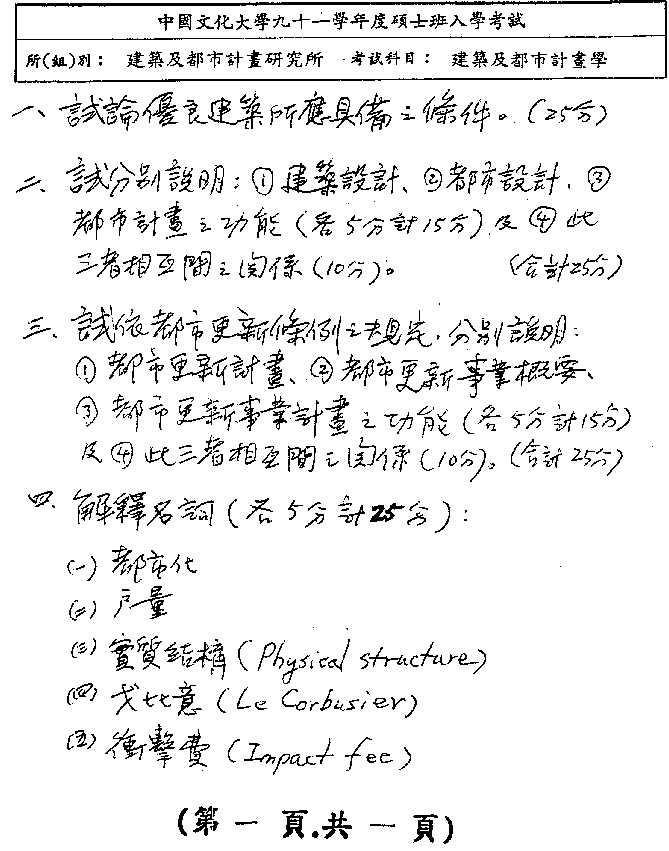 中國文化大學九十一學年度碩士班入學考試
所(組)別： 建築及都市計畫研究所 考試科目： 建築及都市計畫學
一、試論優良建築所應具備之條件。(25分)
二、試分別說明：①建築設計、②都市設計、③
都市計畫之功能(各5分計15分)及④此
三者相互間之関係(10分)。 (合計25分)
三、試依都市更新條例之規定，分別說明：
①都市更新計畫、②都市更新事業概要、
③都市更新事業計畫之功能(各5分計15分)
及④此三者相互間之関係(10分)。(合計25分)
四、解釋名詞(各5分計25分)：
(一)都市化
(二)戶量
(三)實質結構(Physical structure)
(四)戈必意(Le Corbusier)
(五)衝擊費(Impact fee)
(第一頁.共一頁)